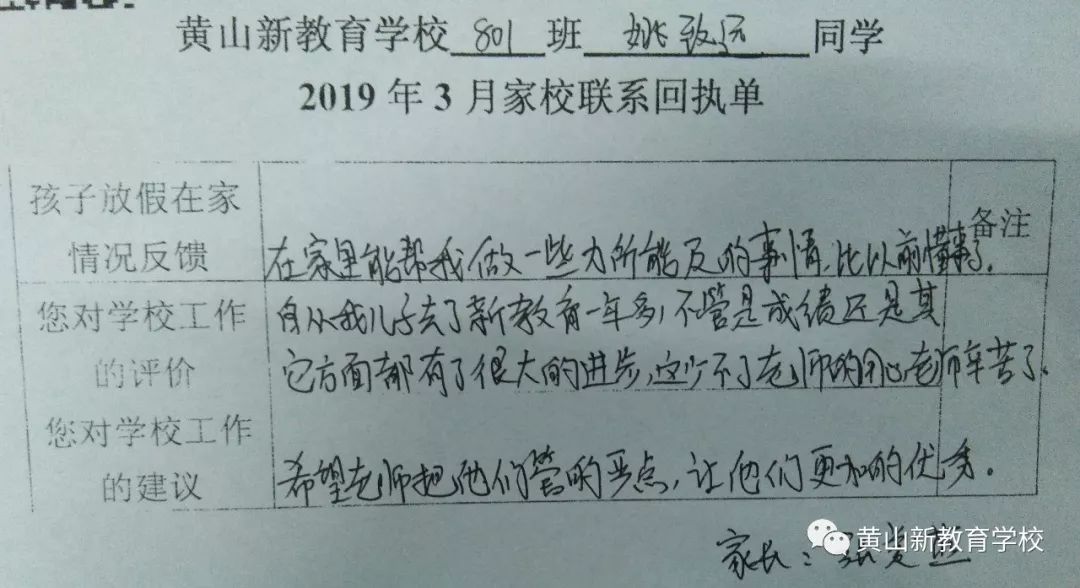 黄山新教育学校 801 班 姚致远 同学
2019 年 3 月家校联系回执单
孩子放假在家
情况反馈
在家里能帮我做一些力所能及的事情.比以前懂事了.
备注
您对学校工作
的评价
自从我儿子去了新教育一年多,不管是成绩还是其
它方面都有了很大的进步,这少不了老师的用心,老师辛苦了.
您对学校工作
的建议
希望老师把他们管的严点,让他们更加的优秀.
家长:张
黄山新教育学校